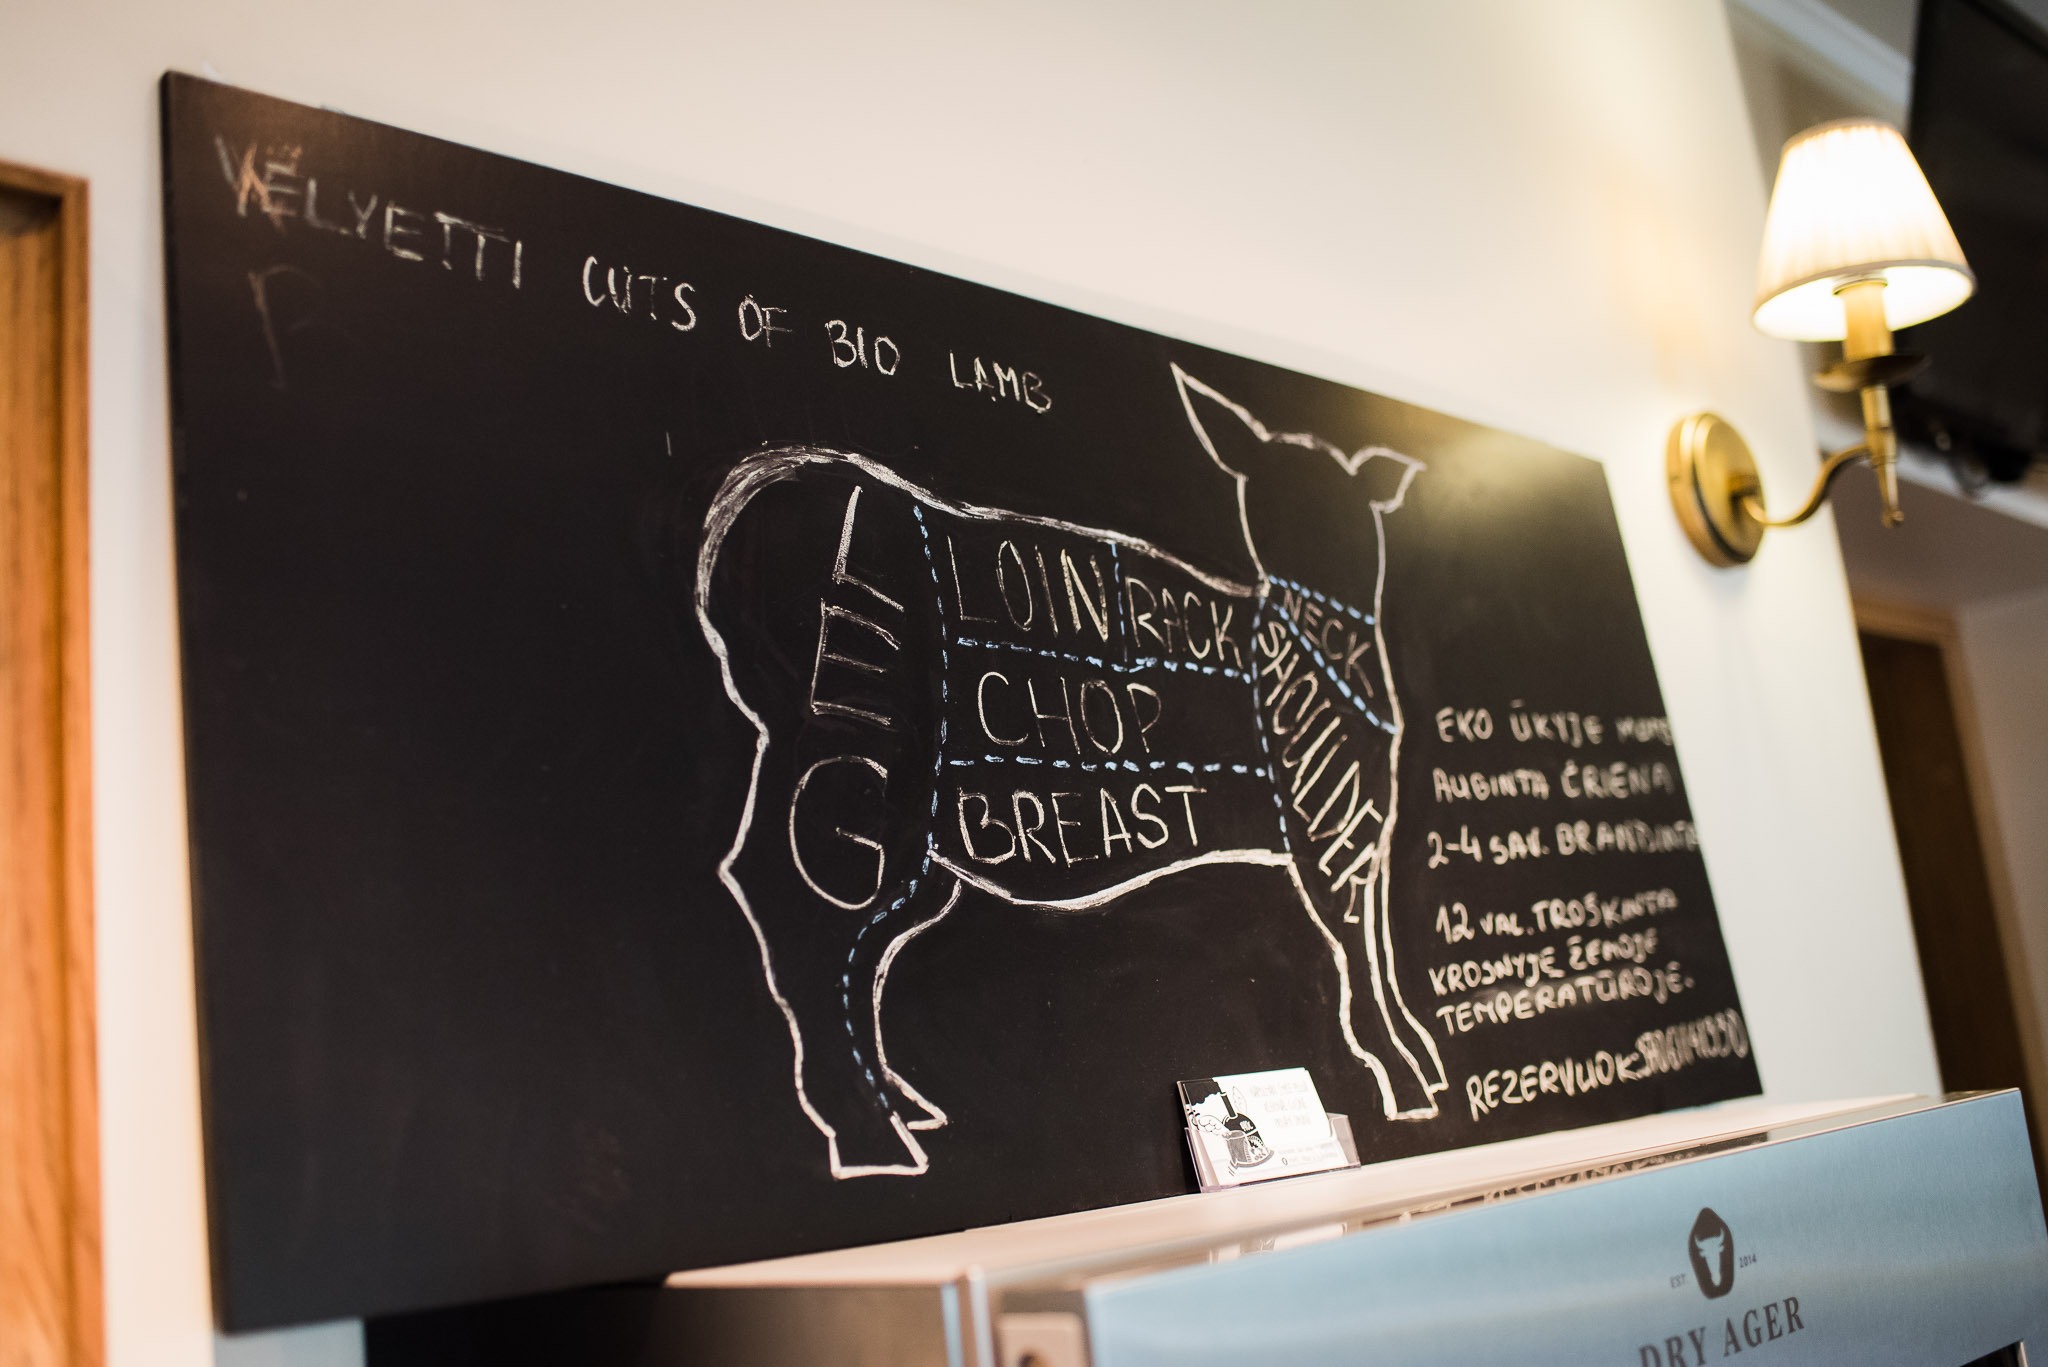 VĖLYETTI CUTS OF BIO LAMB
LEG
LOIN
RACK
NECK
CHOP
SHOULDER
BREAST
EKO ŪKYJE
AUGINTA ĖRIENA
2-4 SAV.
12 VAL. TROŠKINTA
KROSNYJE ŽEMOJE
TEMPERATŪROJE.
REZERVUOK
EST. 2014
DRY AGER